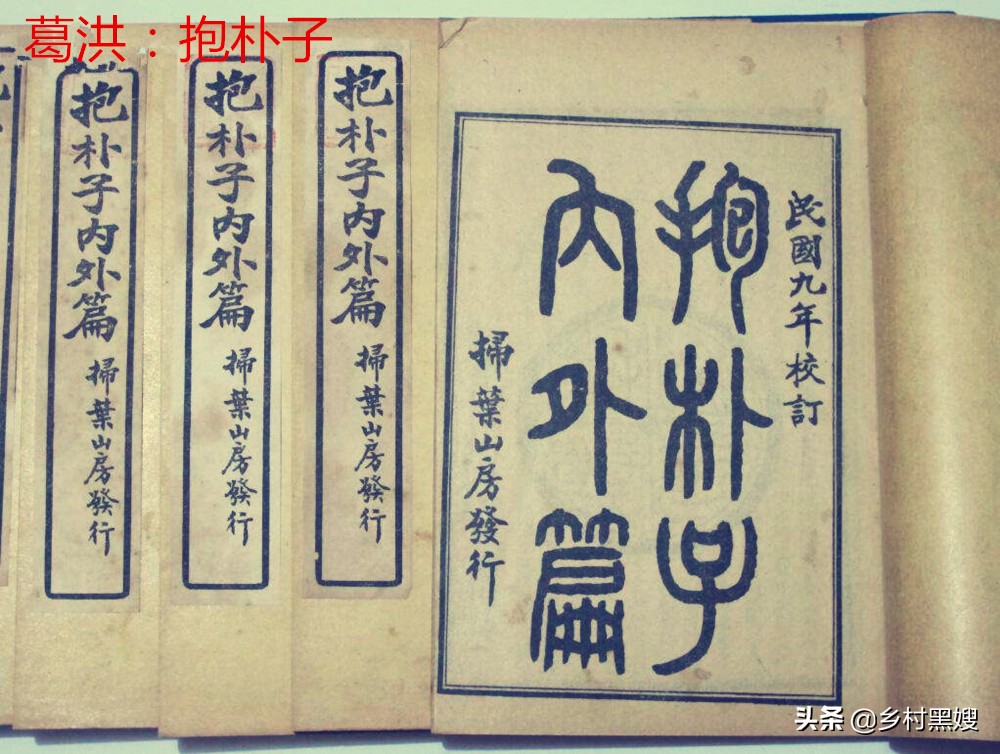 葛洪：抱朴子
民國九年校訂
抱朴子
內外篇
掃葉山房發行
抱朴子內外篇
掃葉山房發行
抱朴子內外篇
掃葉山房發行
抱朴子內外篇
掃葉山房發行
头条 @乡村黑嫂